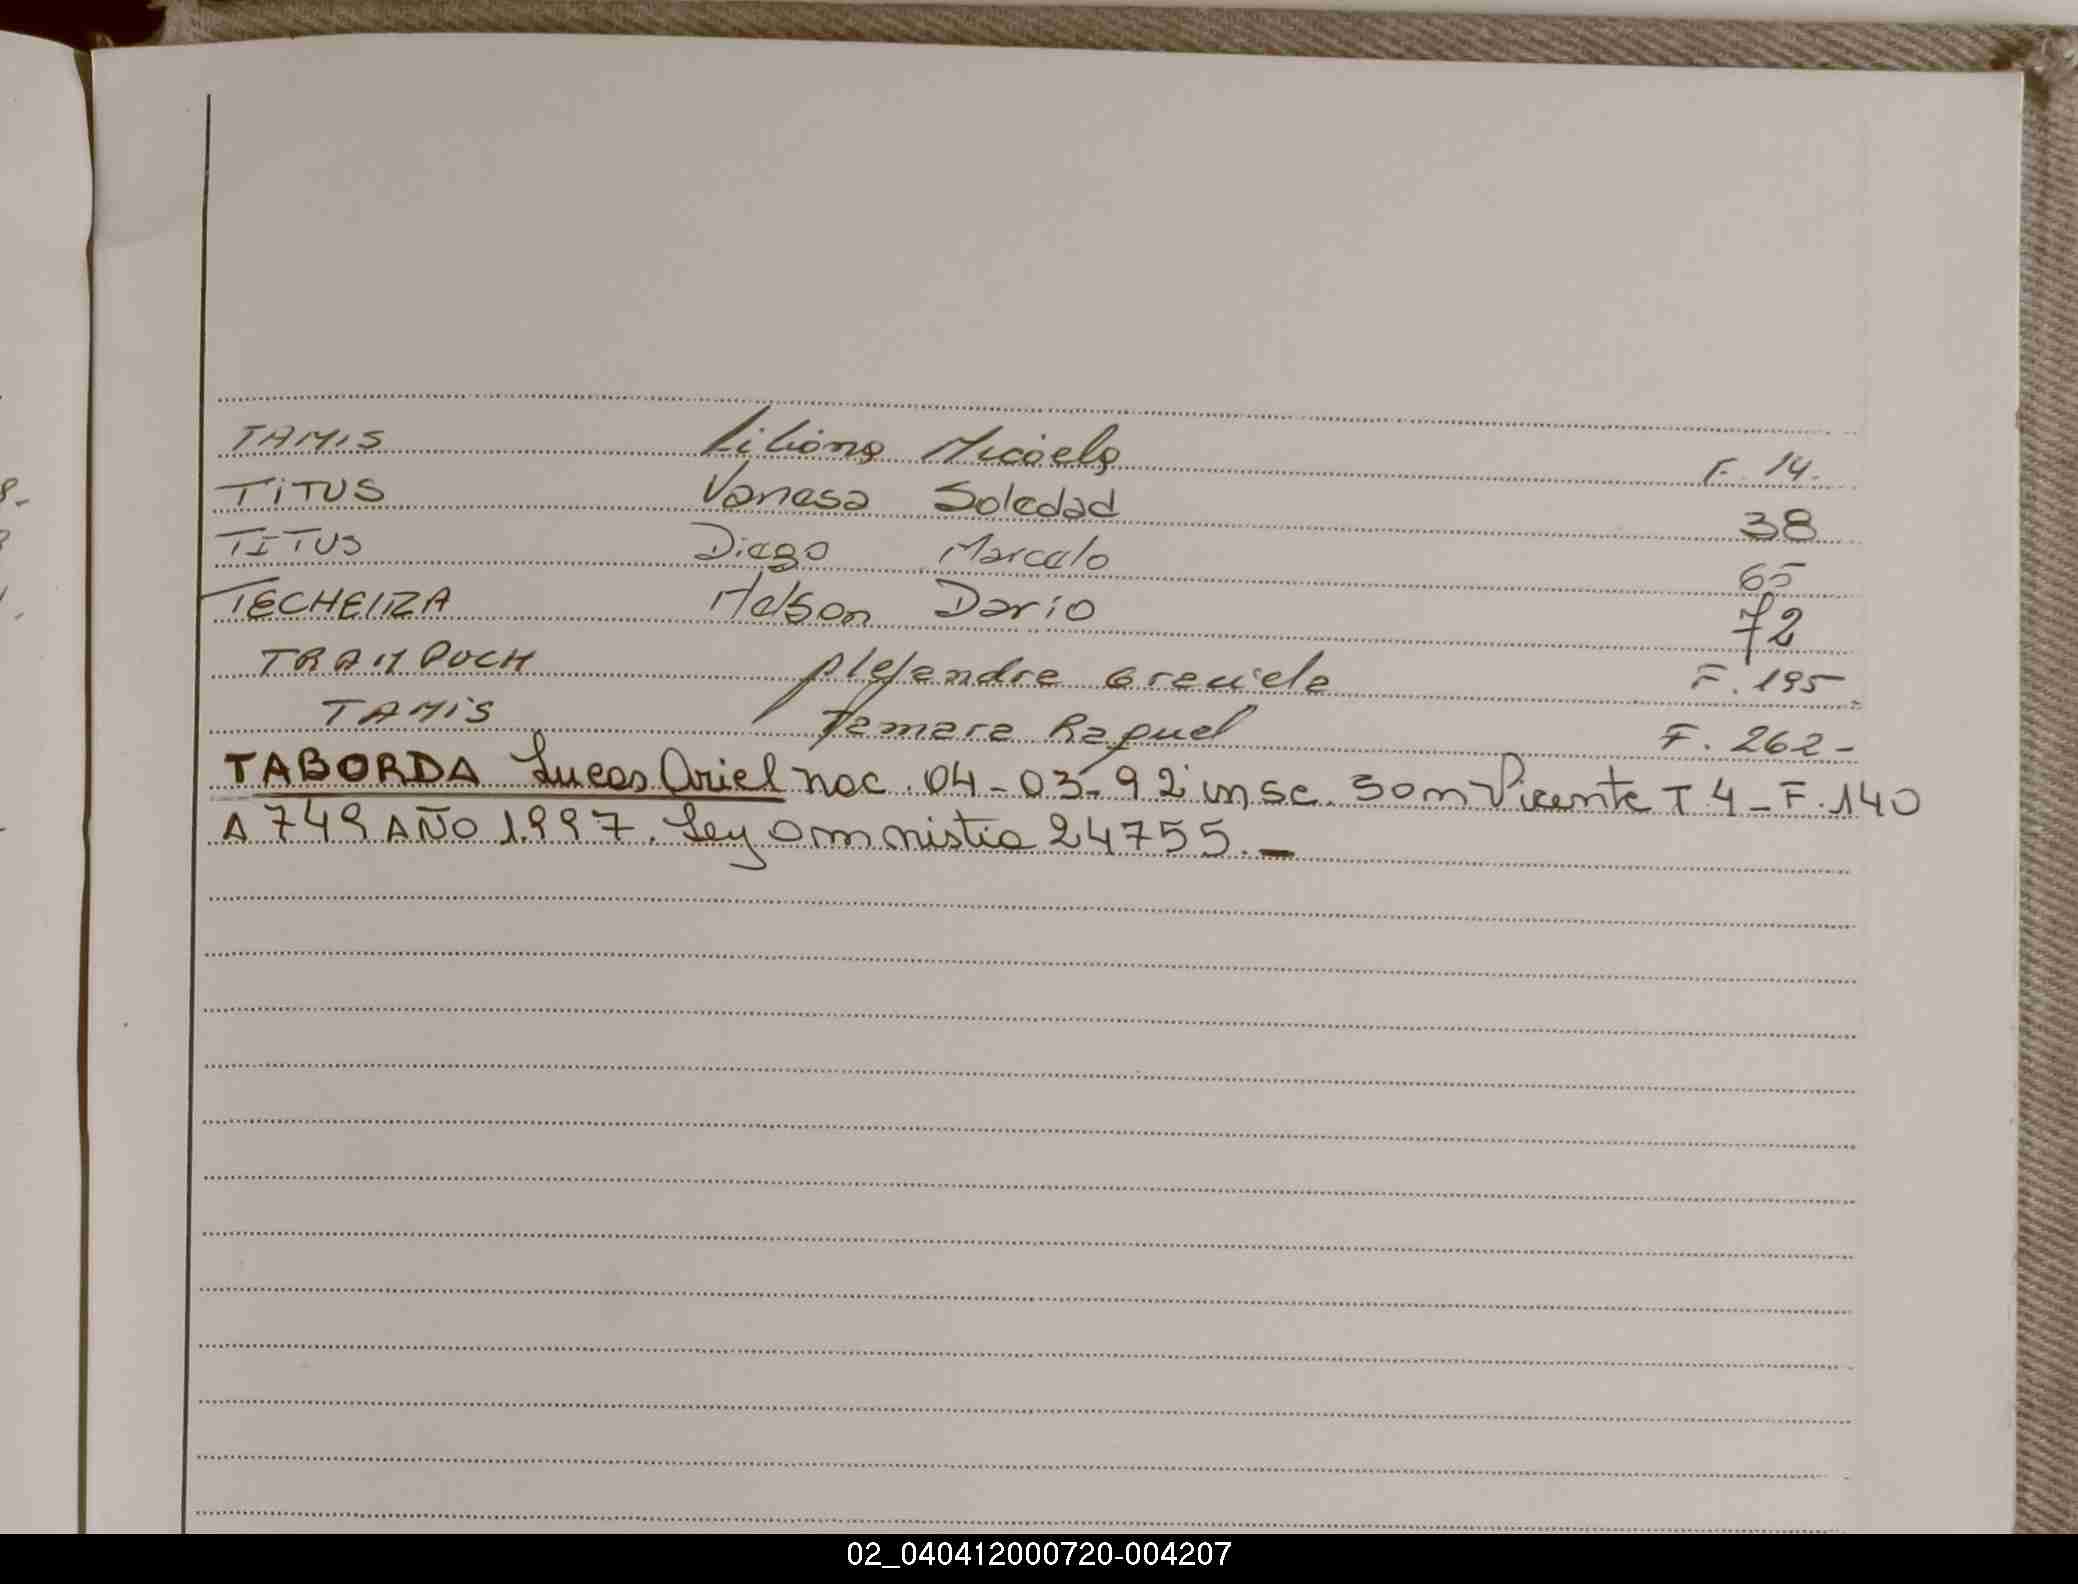 TAMIS Liliana Micaela F. 14.
TITUS Vanesa Soledad 38
TITUS Diego Marcelo 65
TECHEIRA Nelson Dario 72
TRAMPUCH Alejandra Graciela F. 195
TAMIS Tamara Raquel F. 262-
TABORDA Lucas Ariel nac. 04-03-92 insc. San Vicente T 4-F. 140
A 749 AÑO 1.997. Ley amnistia 24755.-
02_040412000720-004207